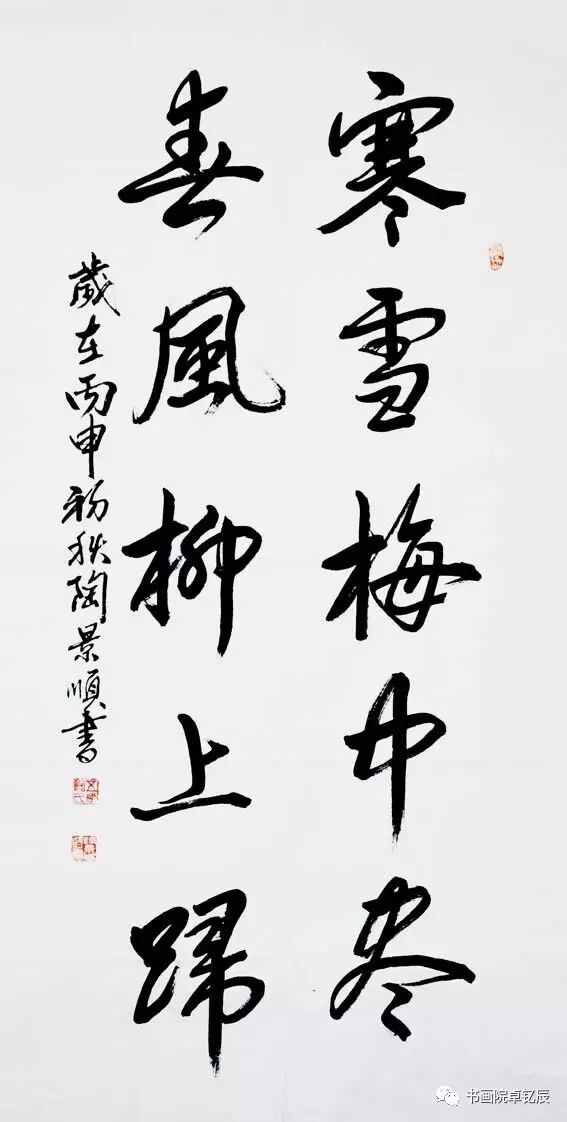 寒雪梅中尽
春風柳上歸
歲在丙申初秋陶景順書
书画院卓钇辰